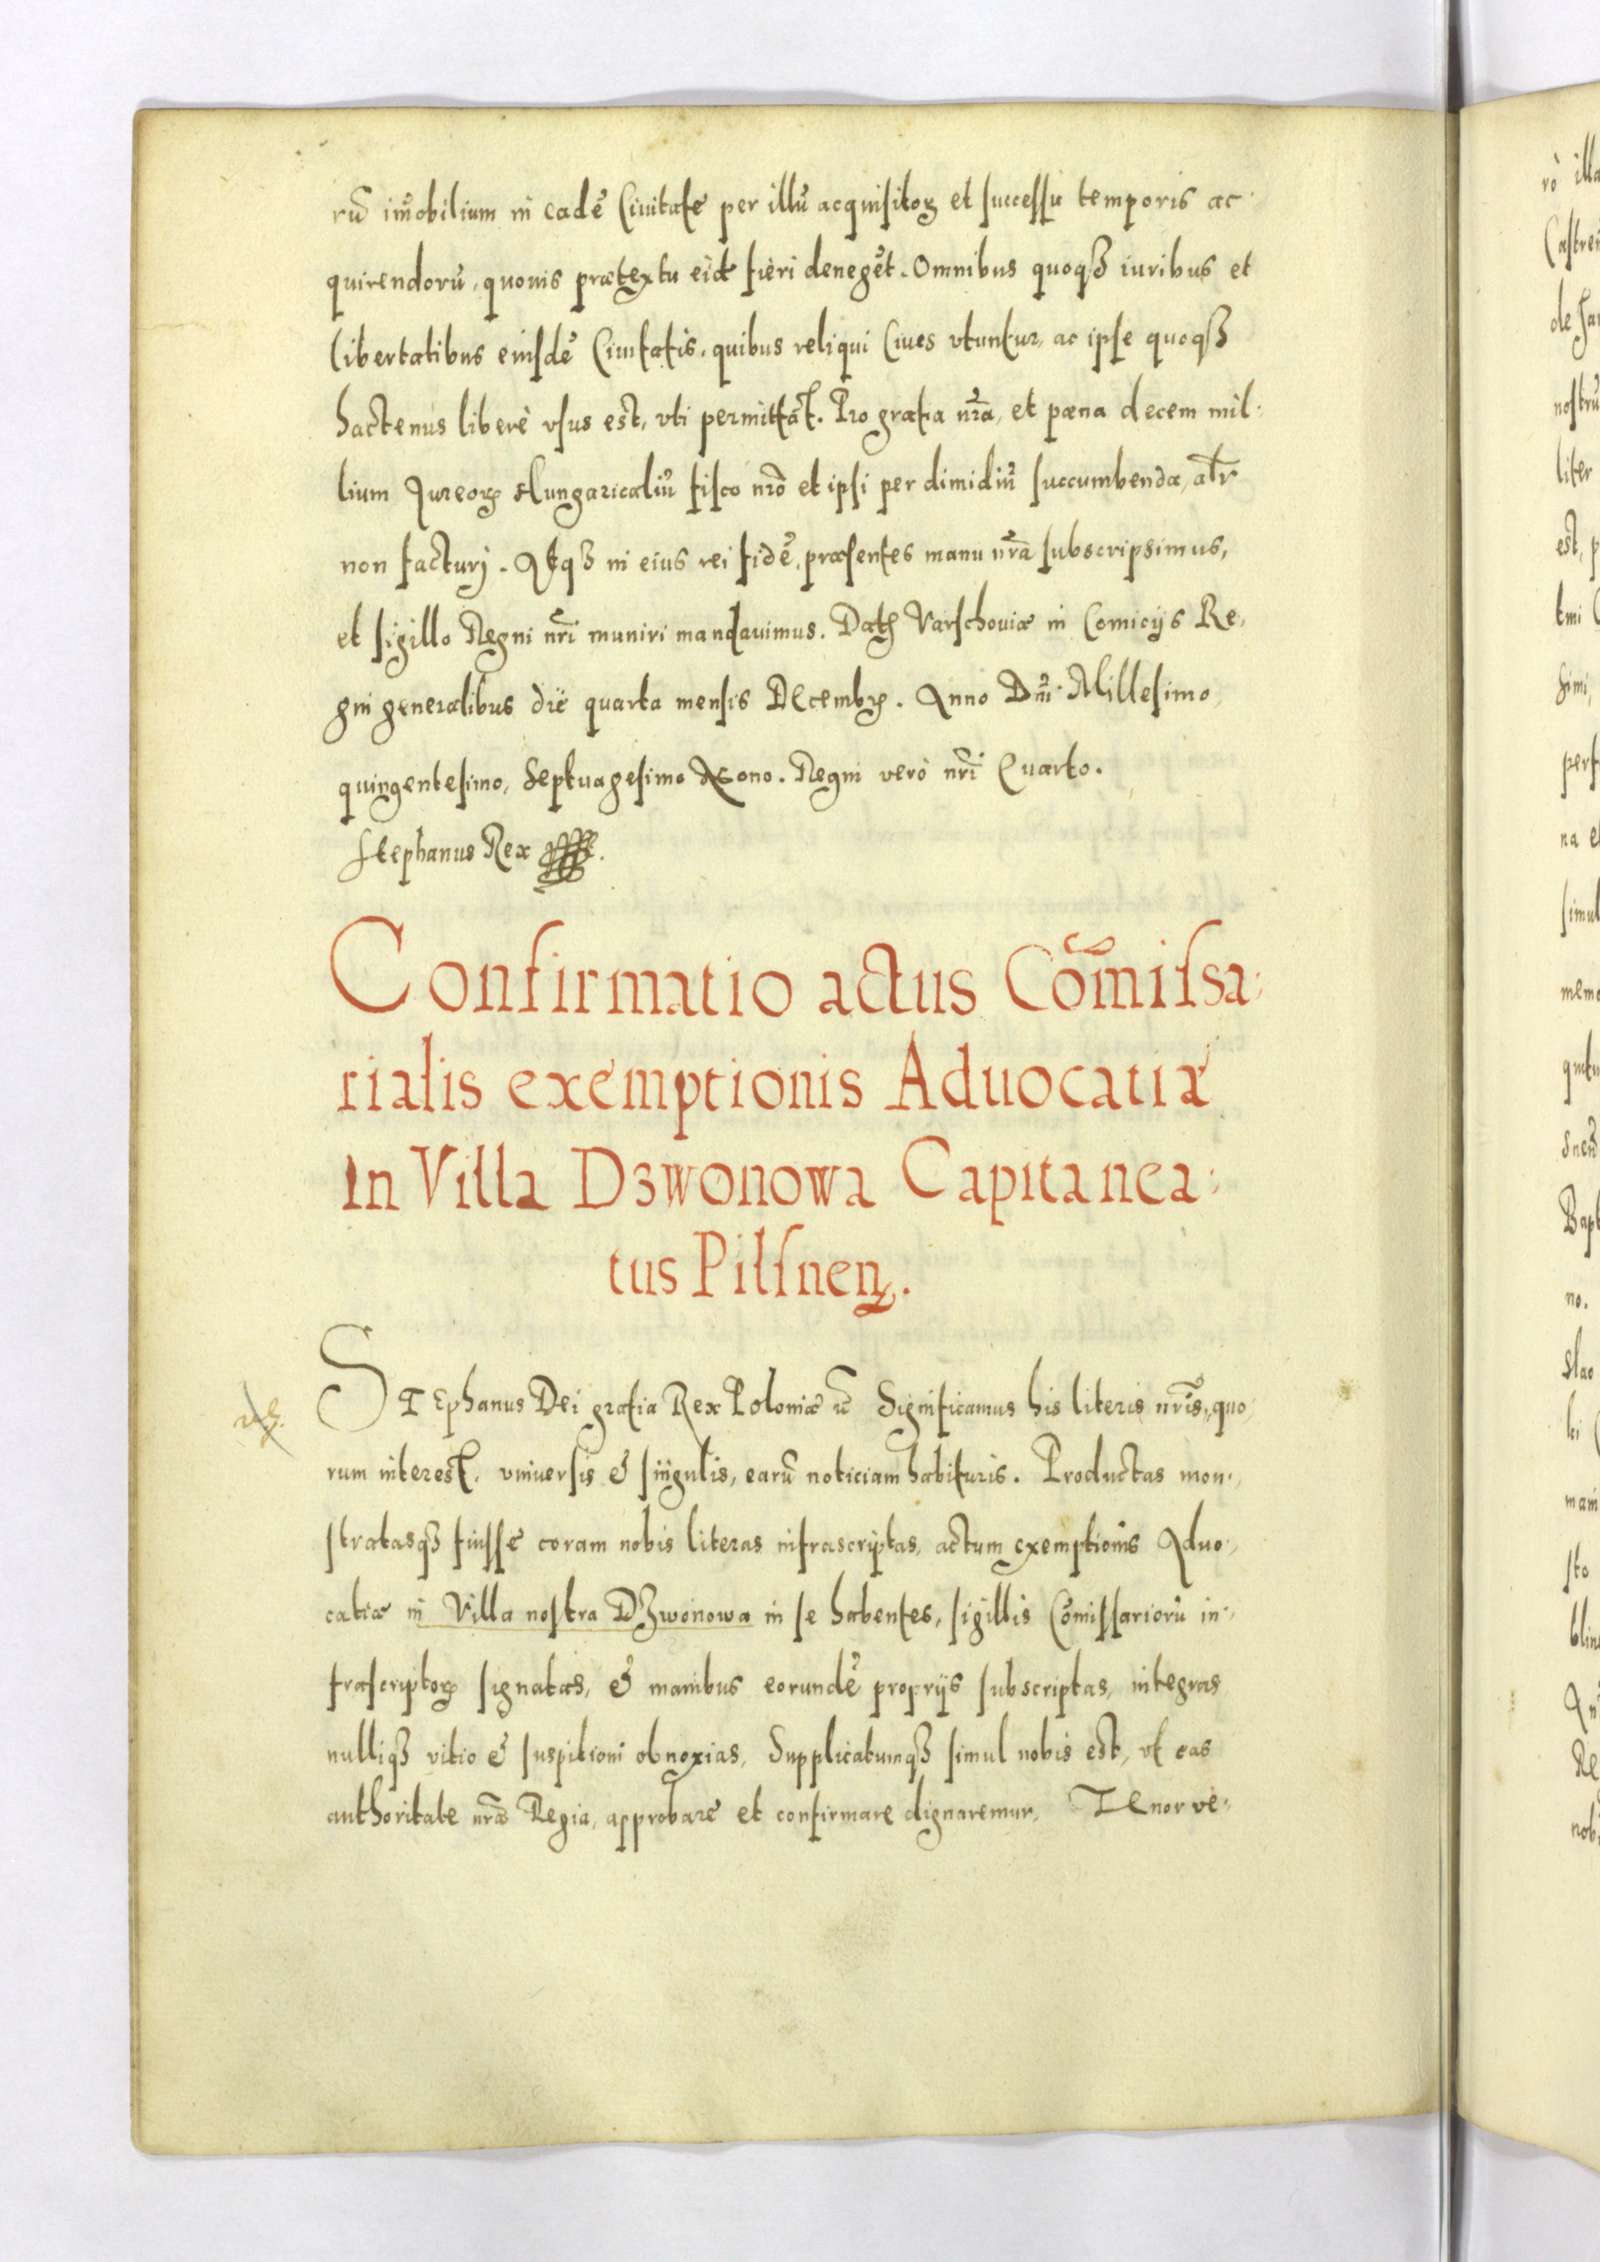 rū im̄obilium in eadē Ciuitate per illū acquisitoꝝ et successu temporis ac-
quirendorū, quouis prætextu eidē fieri denegēt. Omnibus quoqꝫ iuribus et
libertatibus eiusdē Ciuitatis, quibus reliqui Ciues vtuntur, ac ipse quoqꝫ
hactenus liberè vsus est, vti permittāt. Pro gratia nr̄a, et pæna decem mil-
lium Aureoꝝ Hungaricaliū fisco nr̄o et ipsi per dimidiū succumbenda, alr̄
non facturj. Atqꝫ in eius rei fidē, præsentes manu nr̄a subscripsimus,
et sigillo Regni nr̄i muniri mandauimus. Datꝭ Varschouiæ in Comicijs Re-
gni generalibus die quarta mensis Decembꝝ. Anno Dn̄i Millesimo,
quingentesimo, Septuagesimo Nono. Regni verò nr̄i Quarto.
Stephanus Rex
Confirmatio actus Com̄issa-
rialis exemptionis Aduocatiæ
in Villa Dzwonowa Capitanea-
tus Pilsnenꝭ.
STEphanus Dei gratia Rex Poloniæ ꝛc̄ Significamus his literis nr̄is, quo-
rum interest, vniuersis & singulis, earū noticiam habituris. Productas mon-
stratasqꝫ fuisse coram nobis literas infrascriptas, actum exemptionis Aduo-
catiæ in Villa nostra Dzwonowa in se habentes, sigillis Com̄issariorū in-
frascriptoꝝ signatas, & manibus eorundē proprijs subscriptas, integras
nulliqꝫ vitio & suspitioni obnoxias, Supplicatumqꝫ simul nobis est, vt eas
authoritate nr̄a Regia, approbare et confirmare dignaremur, TEnor ve-
rò illa
Castren
de Sa
nostrū
liter
est, p
tmi
simi,
perf
na e
simul
memo
Bapt
no.
Slao
sto
Re
nob